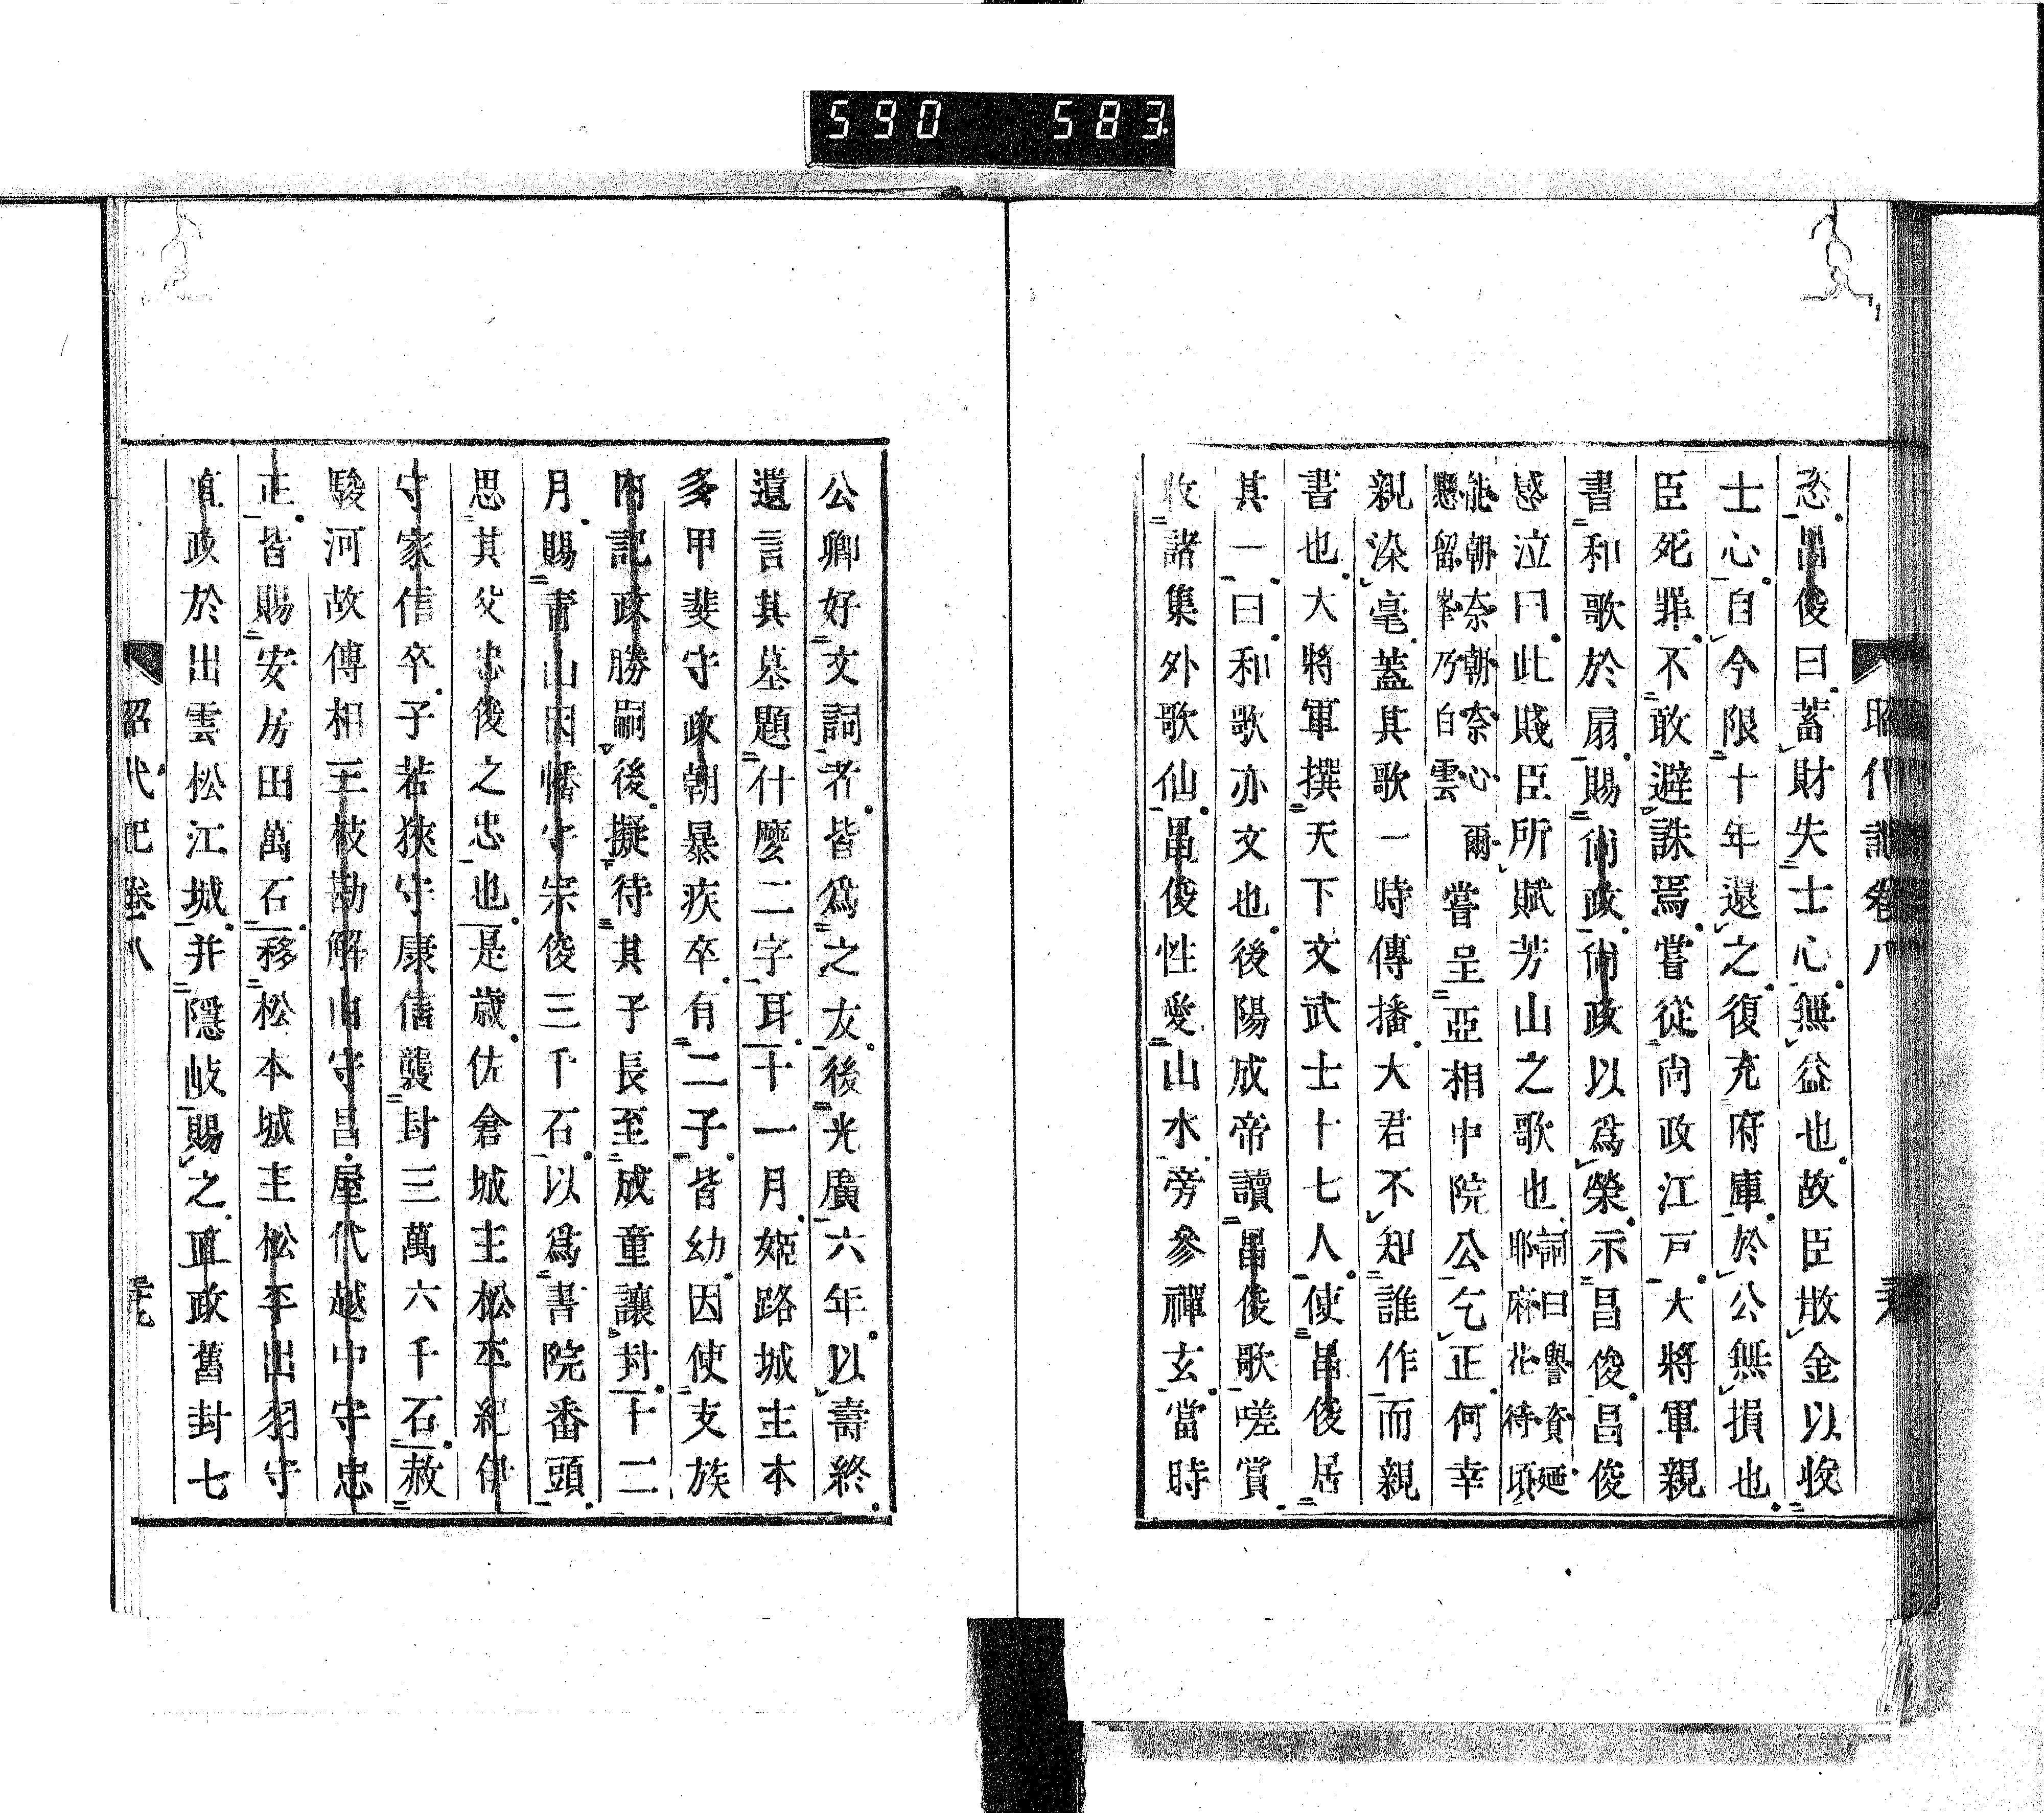 590 583
昭代記卷八
恣昌俊曰蓄財失士心無益也故臣散金以收
士心自今限十年還之復充府庫於公無損也
臣死罪不敢避誅焉嘗從尚政江戸大將軍親
書和歌於扇賜尚政尚政以爲榮示昌俊昌俊
感泣曰此賤臣所賦芳山之歌也詞曰譽資廼
耶麻花待頃
能朝奈朝奈心爾
懸留峯乃白雲
嘗呈亞相中院公乞正何幸
親染毫蓋其歌一時傳播大君不知誰作而親
書也大將軍撰天下文武士十七人使昌俊居
其一曰和歌亦文也後陽成帝讀昌俊歌嗟賞
收諸集外歌仙昌俊性愛山水旁參禪玄當時
公卿好文詞者皆爲之友後光廣六年以壽終
遺言其墓題什麼二字耳十一月姬路城主本
多甲斐守政朝暴疾卒有二子皆幼因使支族
內記政勝嗣後擬待其子長至成童讓封十二
月賜青山因幡守宗俊三千石以爲書院番頭
思其父忠俊之忠也是歲佐倉城主松平紀伊
守家信卒子若狹守康信襲封三萬六千石赦
駿河故傅相三枝勘解由守昌屋代越中守忠
正皆賜安房田萬石移松本城主松平出羽守
直政於出雲松江城并隱岐賜之直政舊封七
昭代記卷八